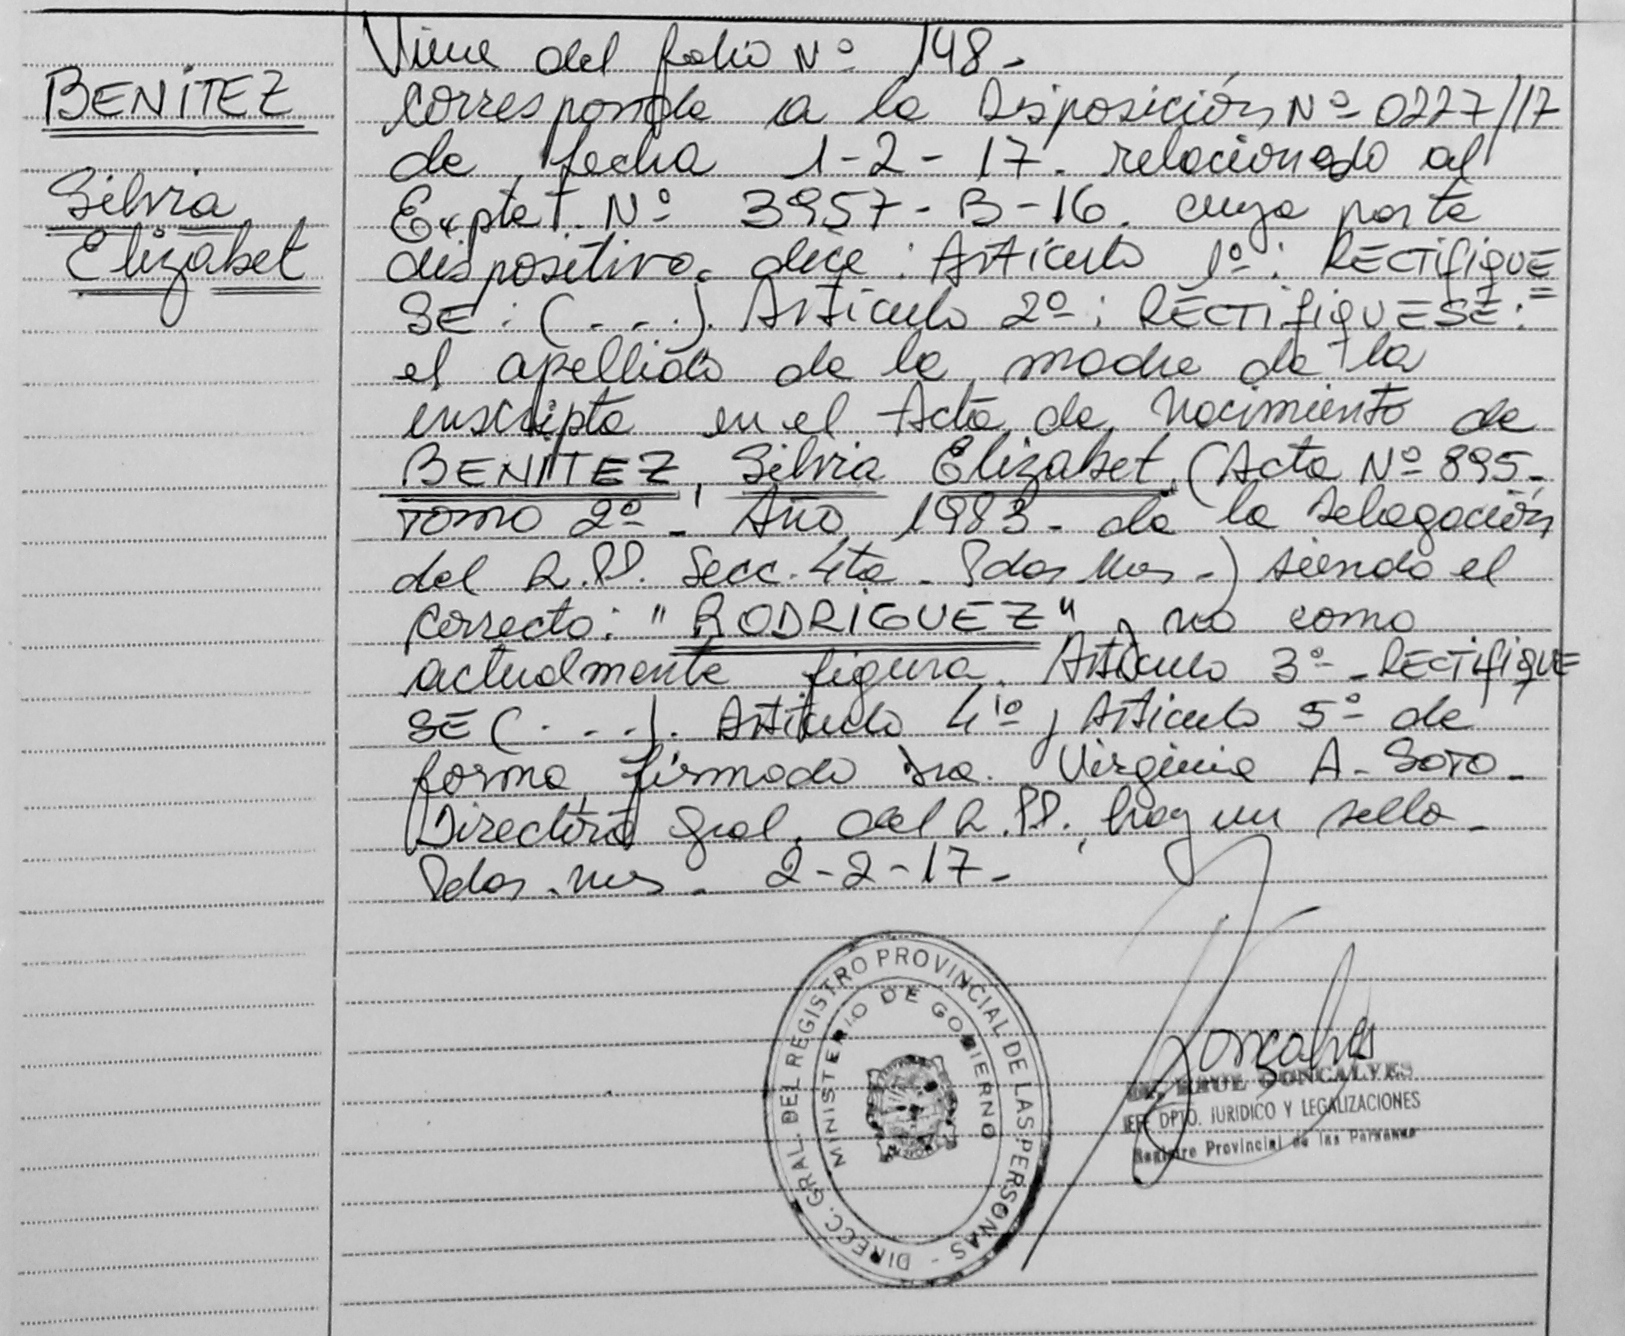 BENITEZ
Silvia
Elizabet
Viene del folio Nº 148.-
Corresponde a la Disposición Nº 0227/17
de fecha 1-2-17. relacionado al
Expte. Nº 3957-B-16. cuya parte
dispositiva dice: Artículo 1º: RECTIFIQUE
SE: (...). Artículo 2º: RECTIFIQUESE:
el apellido de la madre de la
inscripta en el Acta de Nacimiento de
BENITEZ, Silvia Elizabet (Acta Nº 895-
Tomo 2º - Año 1983- de la Delegación
del R.PP. Secc. 4ta - Pdas Mnes.-) siendo el
correcto: "RODRIGUEZ" y no como
actualmente figura. Artículo 3º - RECTIFIQUE
SE (...). Artículo 4º y Artículo 5º de
forma firmado Dra. Virginia A. SOTO-
Directora Gral. del R.PP. hay un sello-
Pdas. Mnes. 2-2-17-
DIRECC. GRAL. DEL REGISTRO PROVINCIAL DE LAS PERSONAS -
MINISTERIO DE GOBIERNO
Goncalves
GONCALVES
JEFE DPTO. JURIDICO Y LEGALIZACIONES
Registro Provincial de las Personas